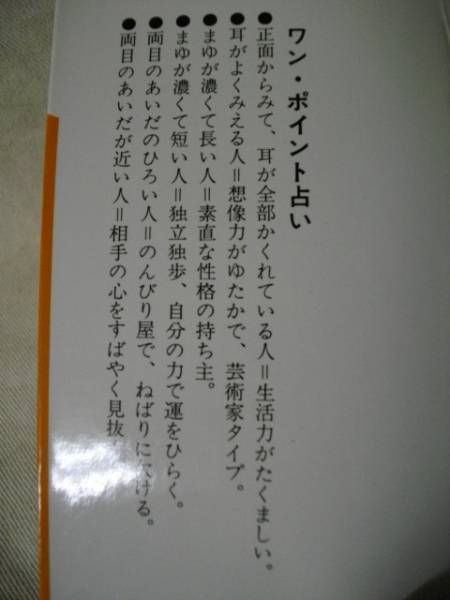 ワン・ポイント占い
●正面からみて、耳が全部かくれている人＝生活力がたくましい。
●耳がよくみえる人＝想像力がゆたかで、芸術家タイプ。
●まゆが濃くて長い人＝素直な性格の持ち主。
●まゆが濃くて短い人＝独立独歩、自分の力で運をひらく。
●両目のあいだのひろい人＝のんびり屋で、ねばりに欠ける。
●両目のあいだが近い人＝相手の心をすばやく見抜